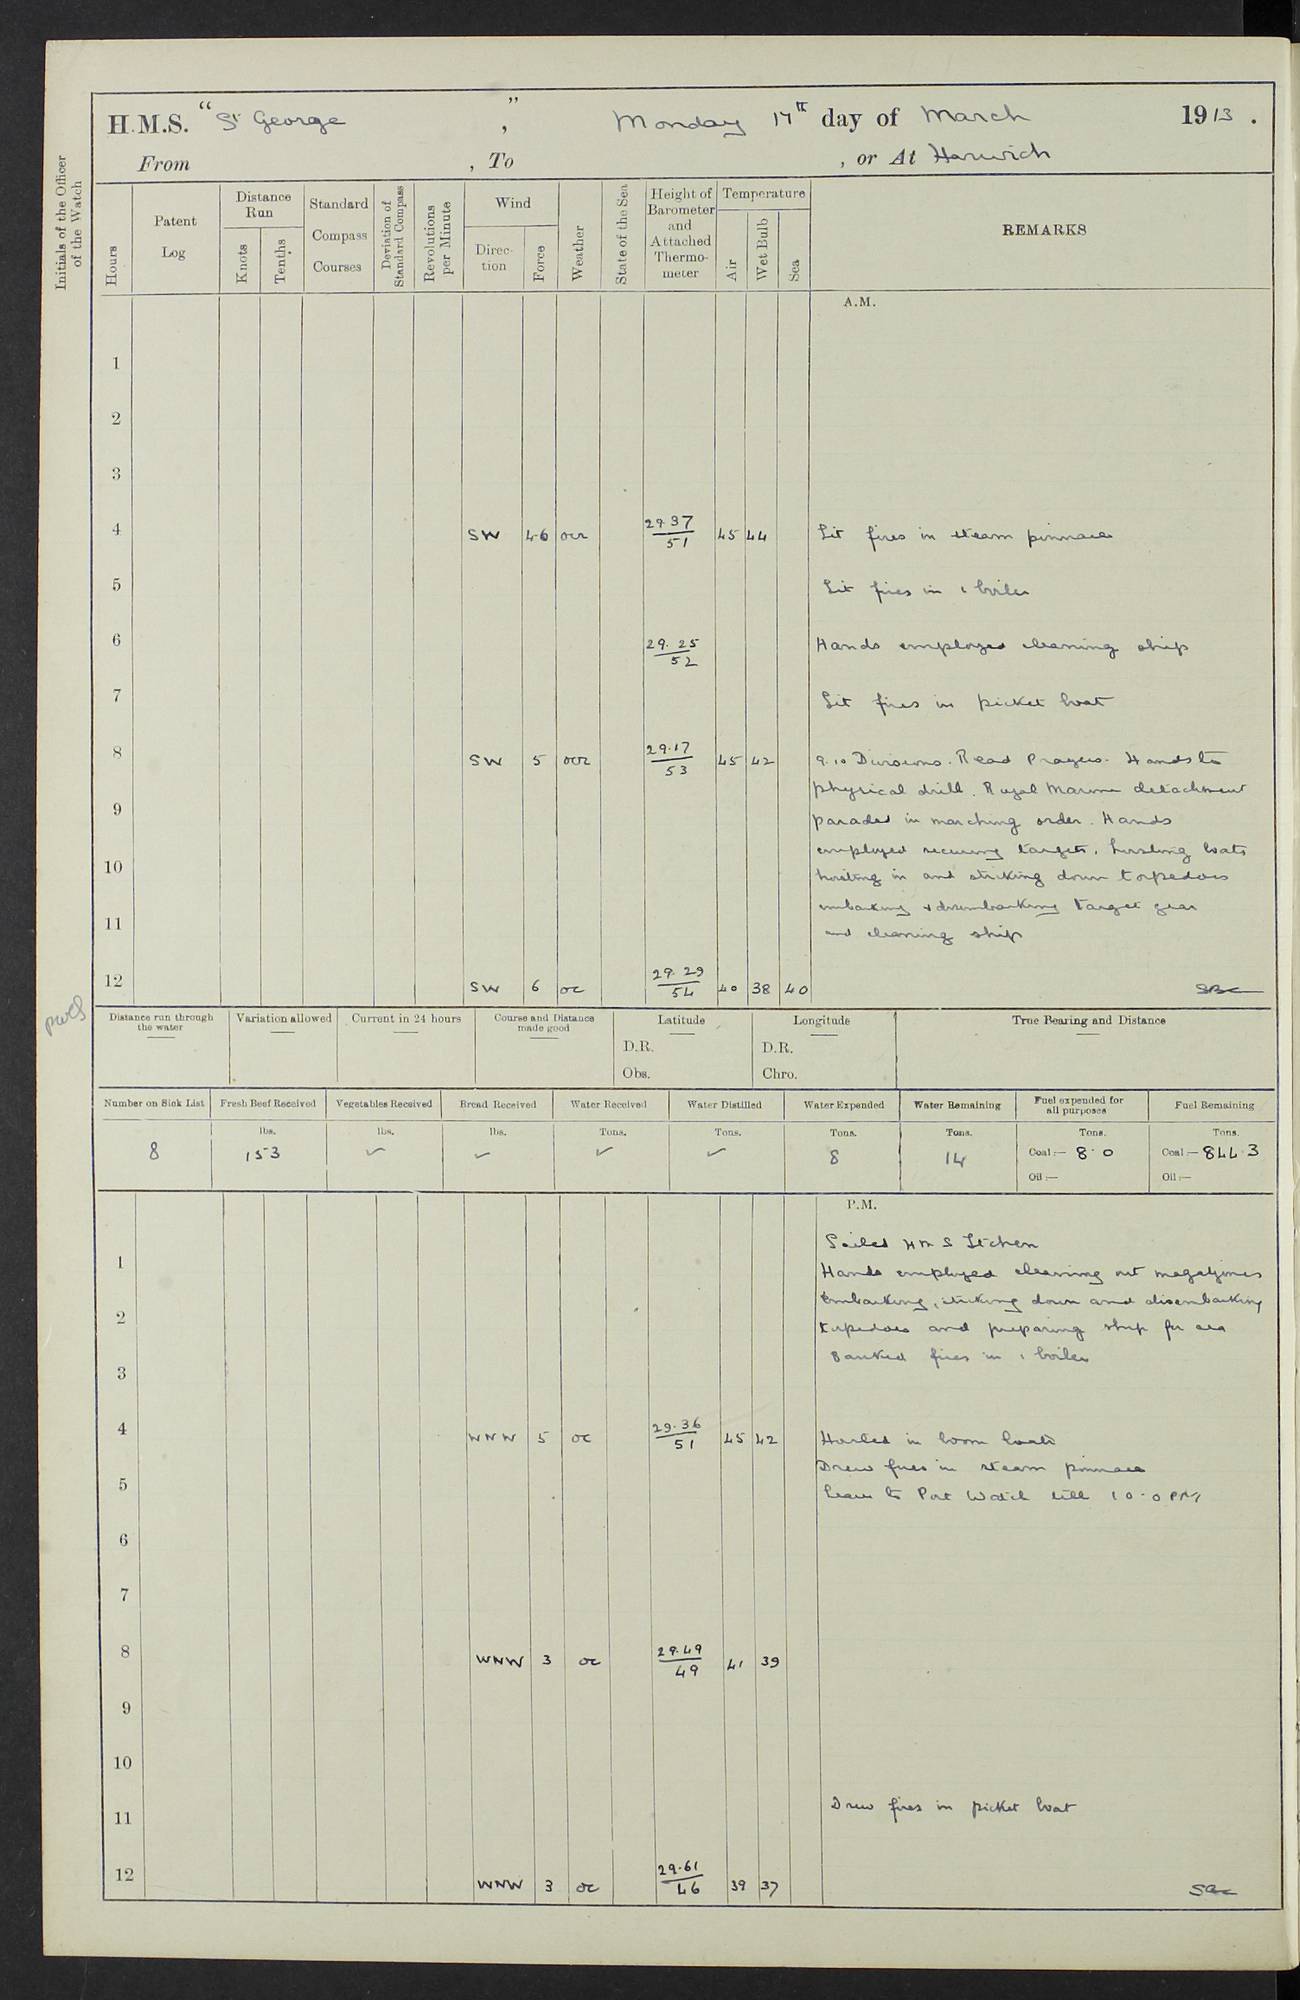 H.M.S. "St George", Monday 17th day of March 1913.
From , To , or At Harwich
Initials of the Officer of the Watch
Hours
Patent Log
Distance Run
Knots
Tenths
Standard Compass Courses
Deviation of Standard Compass
Revolutions per Minute
Wind
Direction
Force
Weather
State of the Sea
Height of Barometer and Attached Thermometer
Temperature
Air
Wet Bulb
Sea
REMARKS
A.M.
1
2
3
4 SW 4.6 ocr 29.37/51 45 44 Lit fires in steam pinnace
5 Lit fires in 1 boiler
6 29.25/52 Hands employed cleaning ship
7 Lit fires in picket boat
8 SW 5 ocr 29.17/53 45 42 9.10 Divisions. Read Prayers. Hands to
physical drill. Royal Marine detachment
9 paraded in marching order. Hands
employed securing targets, hoisting boats
10 hoisting in and striking down torpedoes
embarking & disembarking target gear
11 and cleaning ship
12 SW 6 oc 29.29/54 40 38 40
Distance run through the water
Variation allowed
Current in 24 hours
Course and Distance made good
Latitude
D.R.
Obs.
Longitude
D.R.
Chro.
True Bearing and Distance
Number on Sick List 8
Fresh Beef Received lbs. 153
Vegetables Received lbs. ✓
Bread Received lbs. ✓
Water Received Tons. ✓
Water Distilled Tons. ✓
Water Expended Tons. 8
Water Remaining Tons. 14
Fuel expended for all purposes Tons. Coal:— 8.0 Oil:—
Fuel Remaining Tons. Coal:— 844.3 Oil:—
P.M.
Sailed HMS Itchen
1 Hands employed cleaning out magazines
embarking, striking down and disembarking
2 torpedoes and preparing ship for sea
Banked fires in 1 boiler
3
4 WNW 5 oc 29.36/51 45 42 Hauled in boom boats
Drew fires in steam pinnace
5 Leave to Port Watch till 10.0 PM
6
7
8 WNW 3 oc 29.49/49 41 39
9
10
11 Drew fires in picket boat
12 WNW 3 oc 29.61/46 39 37